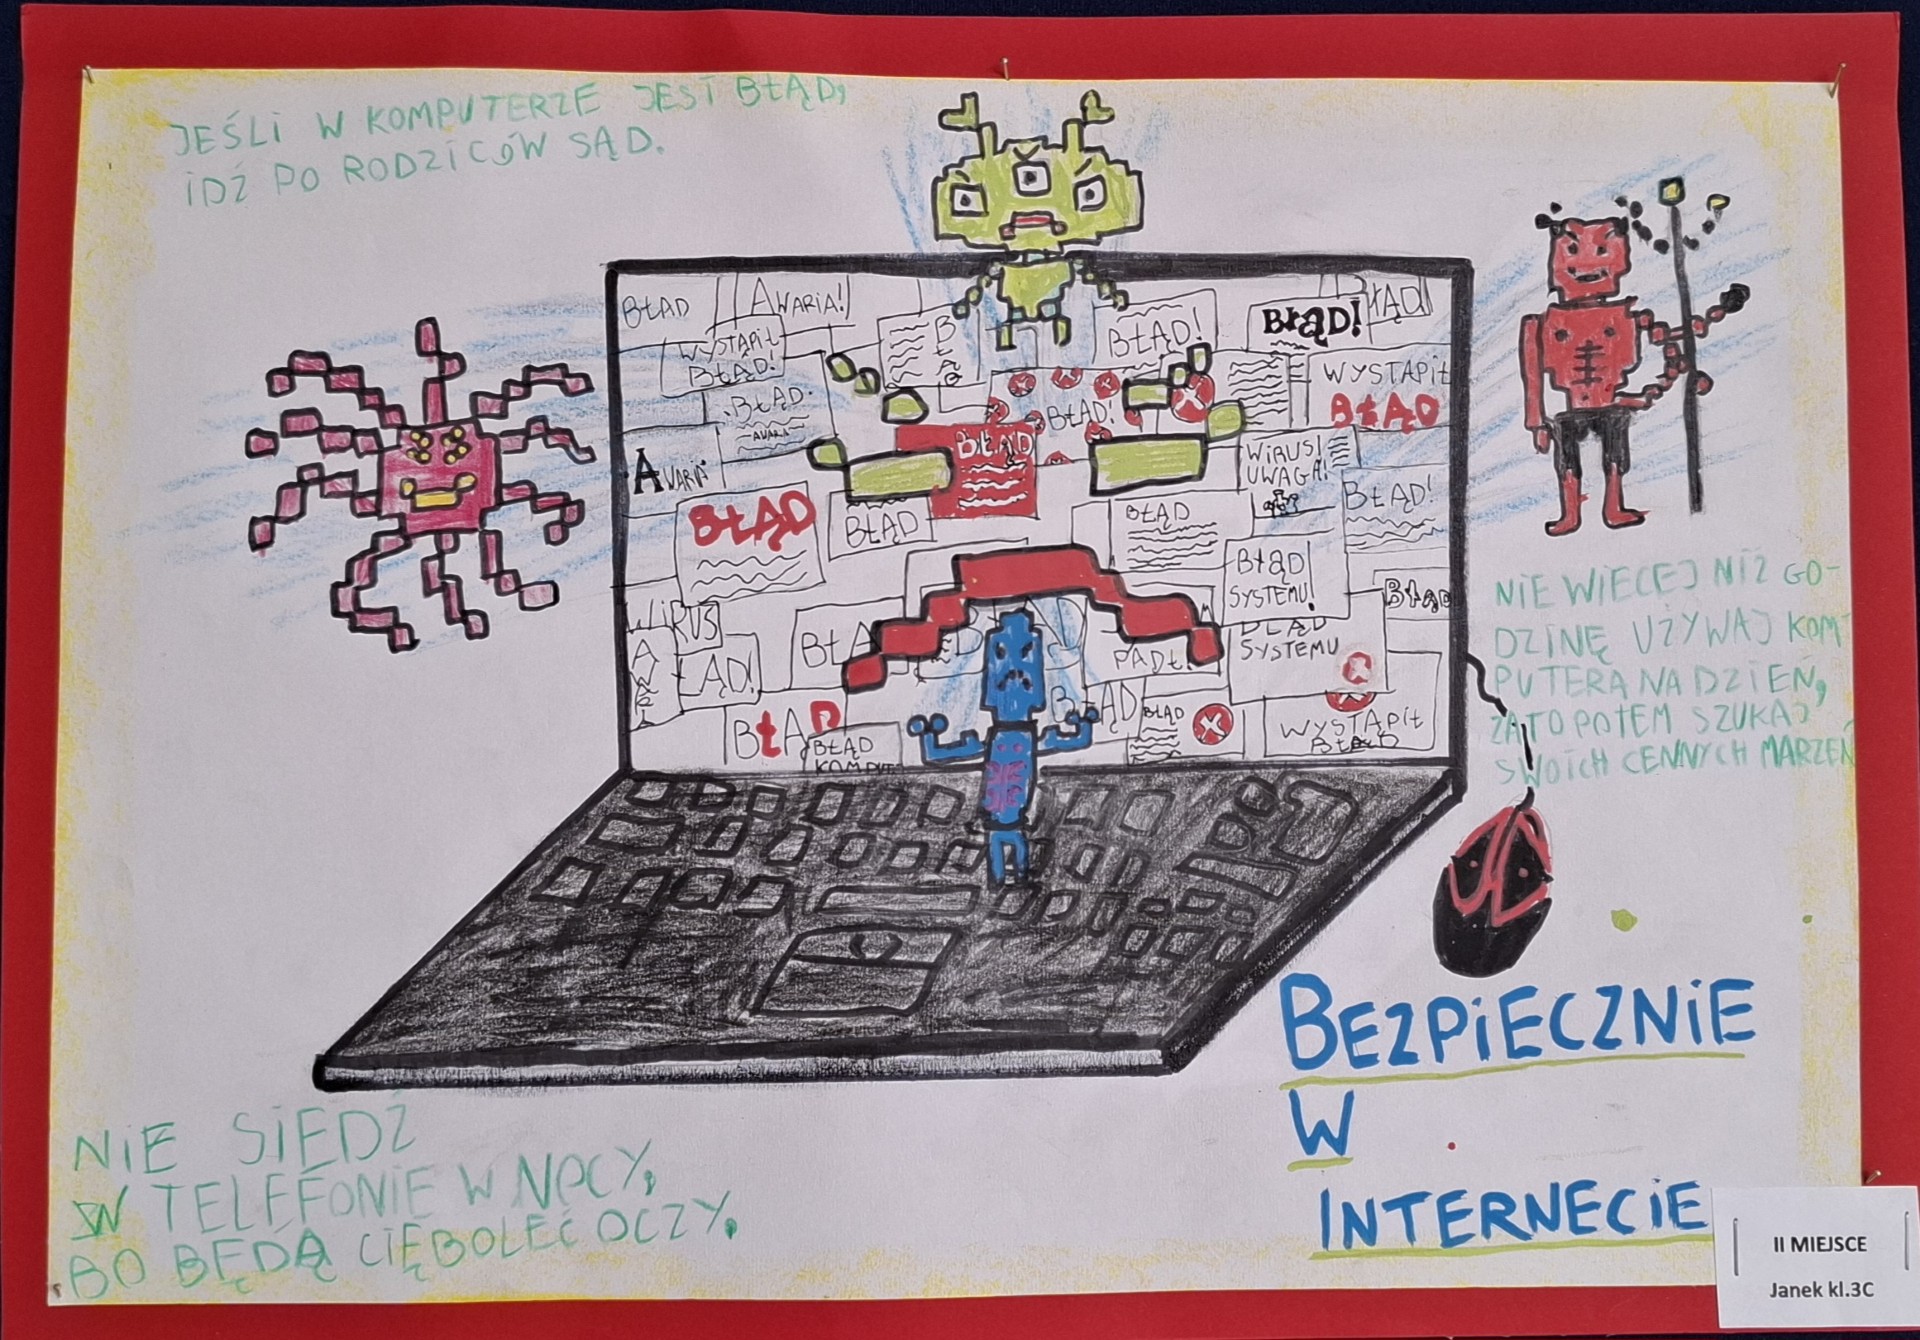 JEŚLI W KOMPUTERZE JEST BŁĄD,
IDŹ PO RODZICÓW SĄD.
BŁĄD
AWARIA!
BŁĄD!
BŁĄD!
WYSTĄPIŁ
BŁĄD!
BŁĄD!
WYSTĄPIŁ
BŁĄD
BŁĄD
AWARIA
BŁĄD!
BŁĄD
WIRUS!
UWAGA!
AWARIA
BŁĄD!
BŁĄD
BŁĄD
BŁĄD
BŁĄD!
SYSTEMU!
BŁĄD
WIRUS
ŁĄD!
BŁĄD
SYSTEMU
PADŁ
BŁĄD
BŁĄD
BŁĄD
WYSTĄPIŁ
BŁĄD
BŁĄD
KOMPUT
NIE WIĘCEJ NIŻ GO-
DZINĘ UŻYWAJ KOM
PUTERA NA DZIEŃ,
ZATO POTEM SZUKAJ
SWOICH CENNYCH MARZEŃ
NIE SIEDŹ
W TELEFONIE W NOCY,
BO BĘDĄ CIĘ BOLEĆ OCZY.
BEZPIECZNIE
W
INTERNECIE
II MIEJSCE
Janek kl.3C